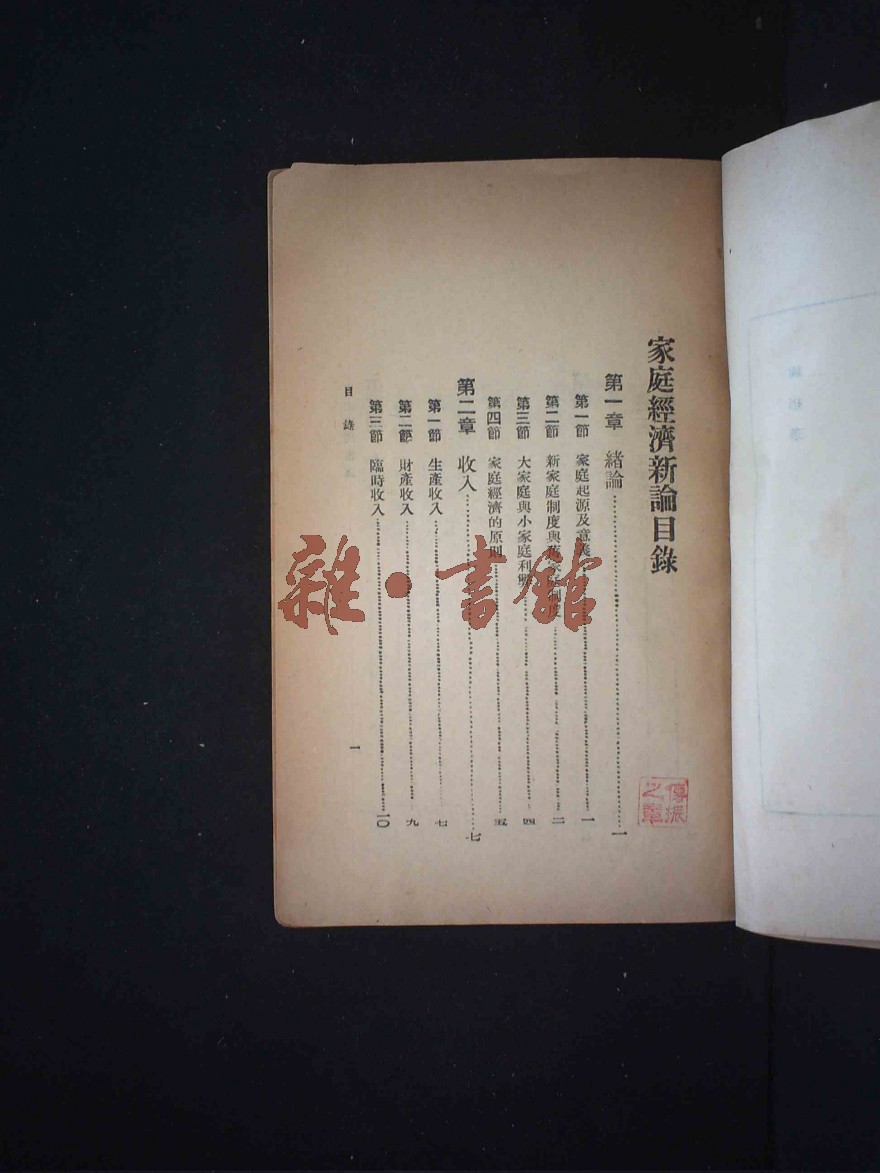 家庭經濟新論目錄
第一章 緒論……一
第一節 家庭起源及意義……一
第二節 新家庭制度與舊家庭制度……二
第三節 大家庭與小家庭利弊……四
第四節 家庭經濟的原則……五
第二章 收入……七
第一節 生產收入……七
第二節 財產收入……九
第三節 臨時收入……一〇
目錄
一
雜·書館
傅振之章